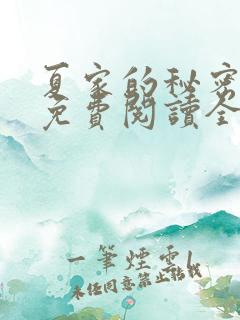 夏家的秘密
免費閱讀全
一筆煙雲
未經同意禁止轉載